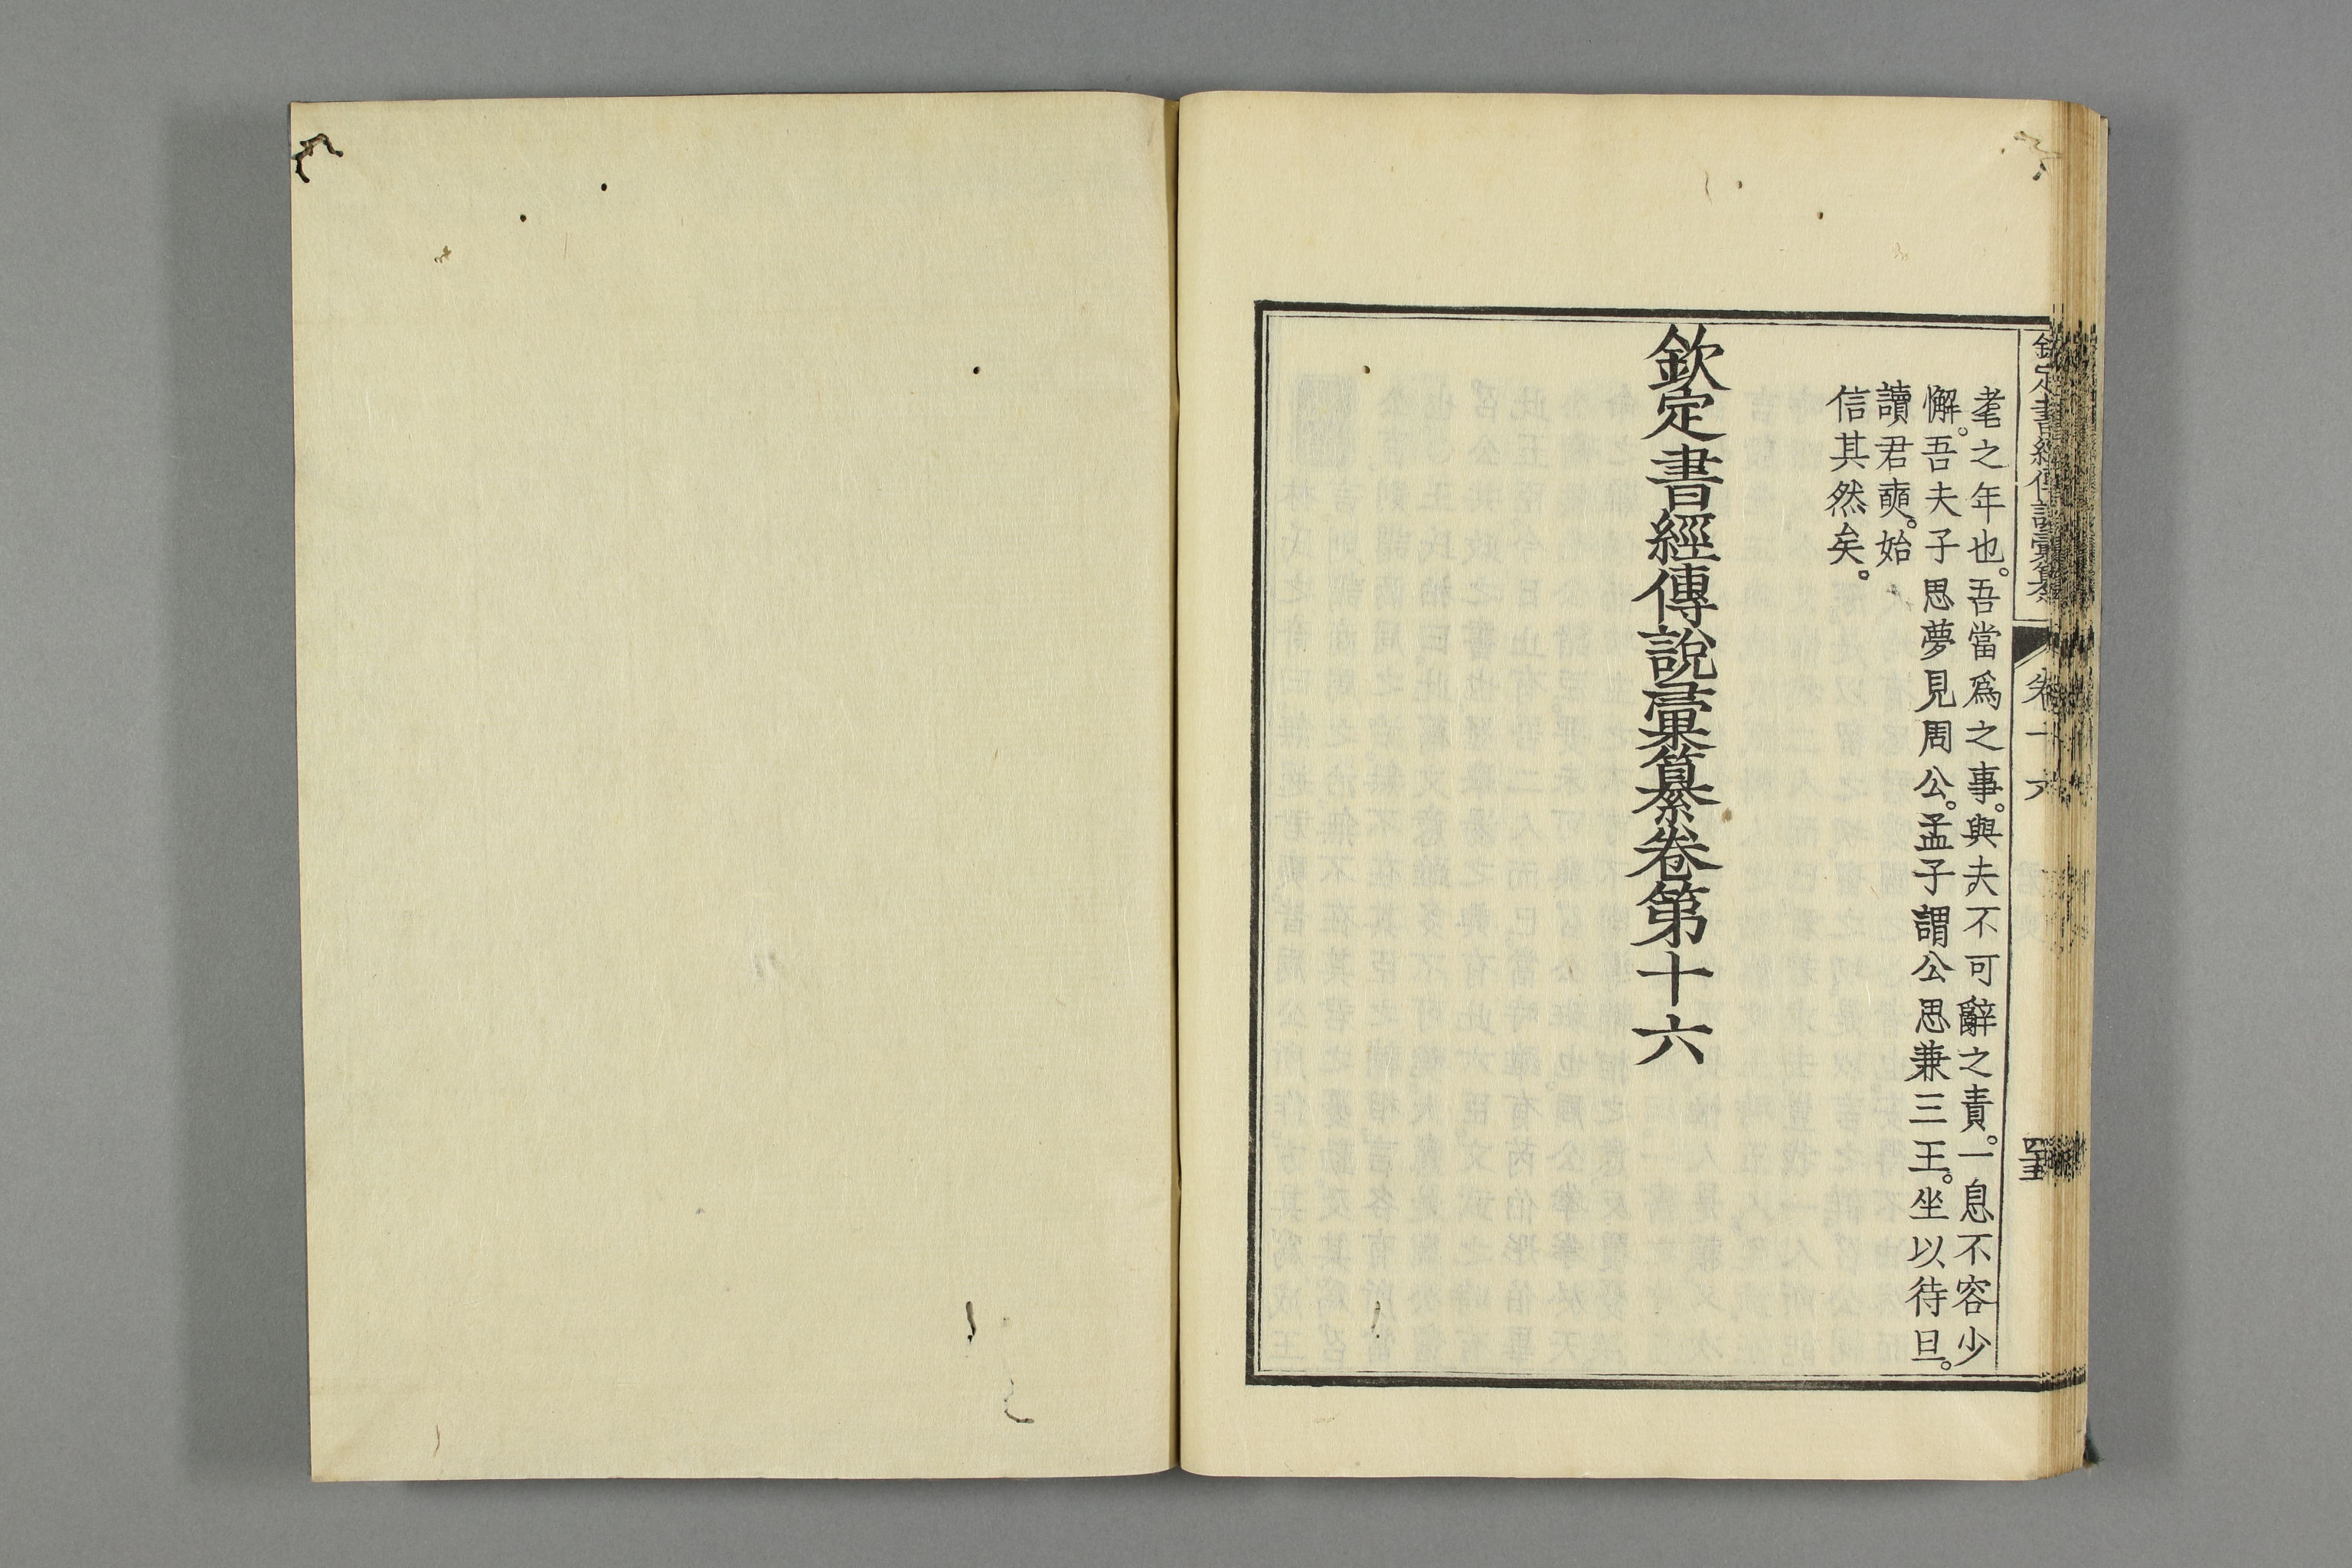 耄之年也。吾當爲之事。與夫不可辭之責。一息不容少
懈。吾夫子思夢見周公。孟子謂公思兼三王。坐以待旦。
讀君奭。始
信其然矣。
欽定書經傳說彙纂卷第十六